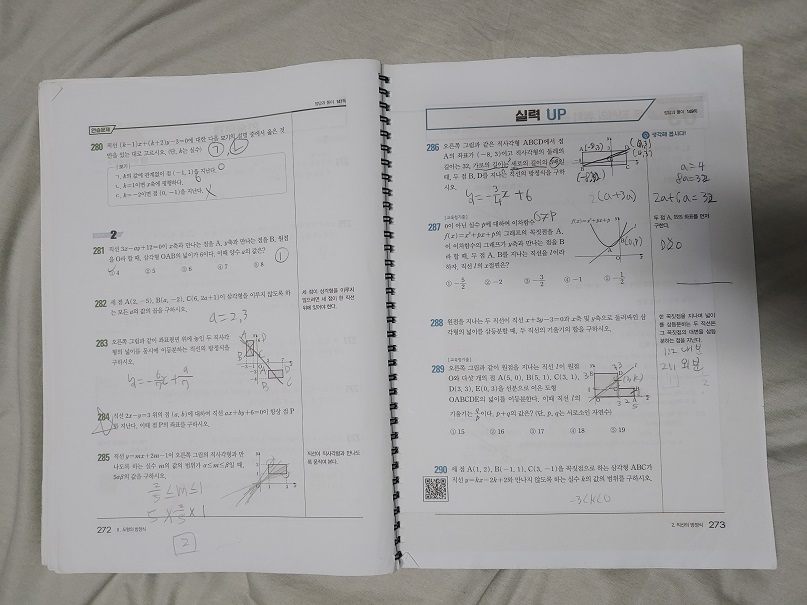 연습문제
정답과 풀이 148쪽
280 직선 (k-1)x+(k+2)y-3=0에 대한 다음 보기의 설명 중에서 옳은 것
만을 있는 대로 고르시오. (단, k는 실수)
보기
ㄱ. k의 값에 관계없이 점 (-1, 1)을 지난다.
ㄴ. k=1이면 x축에 평행하다.
ㄷ. k=-2이면 점 (0, -1)을 지난다.
2
281 직선 3x-ay+12=0이 x축과 만나는 점을 A, y축과 만나는 점을 B, 원점
을 O라 할 때, 삼각형 OAB의 넓이가 6이다. 이때 양수 a의 값은?
① 4 ② 5 ③ 6 ④ 7 ⑤ 8
①
282 세 점 A(2, -5), B(a, -2), C(6, 2a+1)이 삼각형을 이루지 않도록 하
는 모든 a의 값의 곱을 구하시오.
세 점이 삼각형을 이루지
않으려면 세 점이 한 직선
위에 있어야 한다.
a=2,3
283 오른쪽 그림과 같이 좌표평면 위에 놓인 두 직사각
형의 넓이를 동시에 이등분하는 직선의 방정식을
구하시오.
284 직선 2x-y=3 위의 점 (a, b)에 대하여 직선 ax+by+6=0이 항상 점 P
를 지난다. 이때 점 P의 좌표를 구하시오.
285 직선 y=mx+2m-1이 오른쪽 그림의 직사각형과 만
나도록 하는 실수 m의 값의 범위가 α≤m≤β일 때,
5αβ의 값을 구하시오.
직선이 직사각형과 만나도
록 움직여 본다.
2
272 II. 도형의 방정식
실력 UP
정답과 풀이 149쪽
286 오른쪽 그림과 같은 직사각형 ABCD에서 점
A의 좌표가 (-8, 3)이고 직사각형의 둘레의
길이는 32, 가로의 길이는 세로의 길이의 3배일
때, 두 점 B, D를 지나는 직선의 방정식을 구하
시오.
생각해 봅시다!
a=4
8a=32
2a+6a=32
2(a+3a)
두 점 A, B의 좌표를 먼저
구한다.
287 [교육청기출]
0이 아닌 실수 p에 대하여 이차함수
f(x)=x²+px+p의 그래프의 꼭짓점을 A,
이 이차함수의 그래프가 y축과 만나는 점을 B
라 할 때, 두 점 A, B를 지나는 직선을 l이라
하자. 직선 l의 x절편은?
f(x)=x²+px+p
① -5/2 ② -2 ③ -3/2 ④ -1 ⑤ -1/2
288 원점을 지나는 두 직선이 직선 x+3y-3=0과 x축 및 y축으로 둘러싸인 삼
각형의 넓이를 삼등분할 때, 두 직선의 기울기의 합을 구하시오.
한 꼭짓점을 지나며 넓이
를 삼등분하는 두 직선은
그 꼭짓점의 대변을 삼등
분하는 점을 지난다.
1:2 내분
2:1 외분
289 [교육청기출]
오른쪽 그림과 같이 원점을 지나는 직선 l이 원점
O와 다섯 개의 점 A(5, 0), B(5, 1), C(3, 1),
D(3, 3), E(0, 3)을 선분으로 이은 도형
OABCDE의 넓이를 이등분한다. 이때 직선 l의
기울기는 q/p이다. p+q의 값은? (단, p, q는 서로소인 자연수)
① 15 ② 16 ③ 17 ④ 18 ⑤ 19
290 세 점 A(1, 2), B(-1, 1), C(3, -1)을 꼭짓점으로 하는 삼각형 ABC가
직선 y=kx-2k+2와 만나지 않도록 하는 실수 k의 값의 범위를 구하시오.
2. 직선의 방정식 273